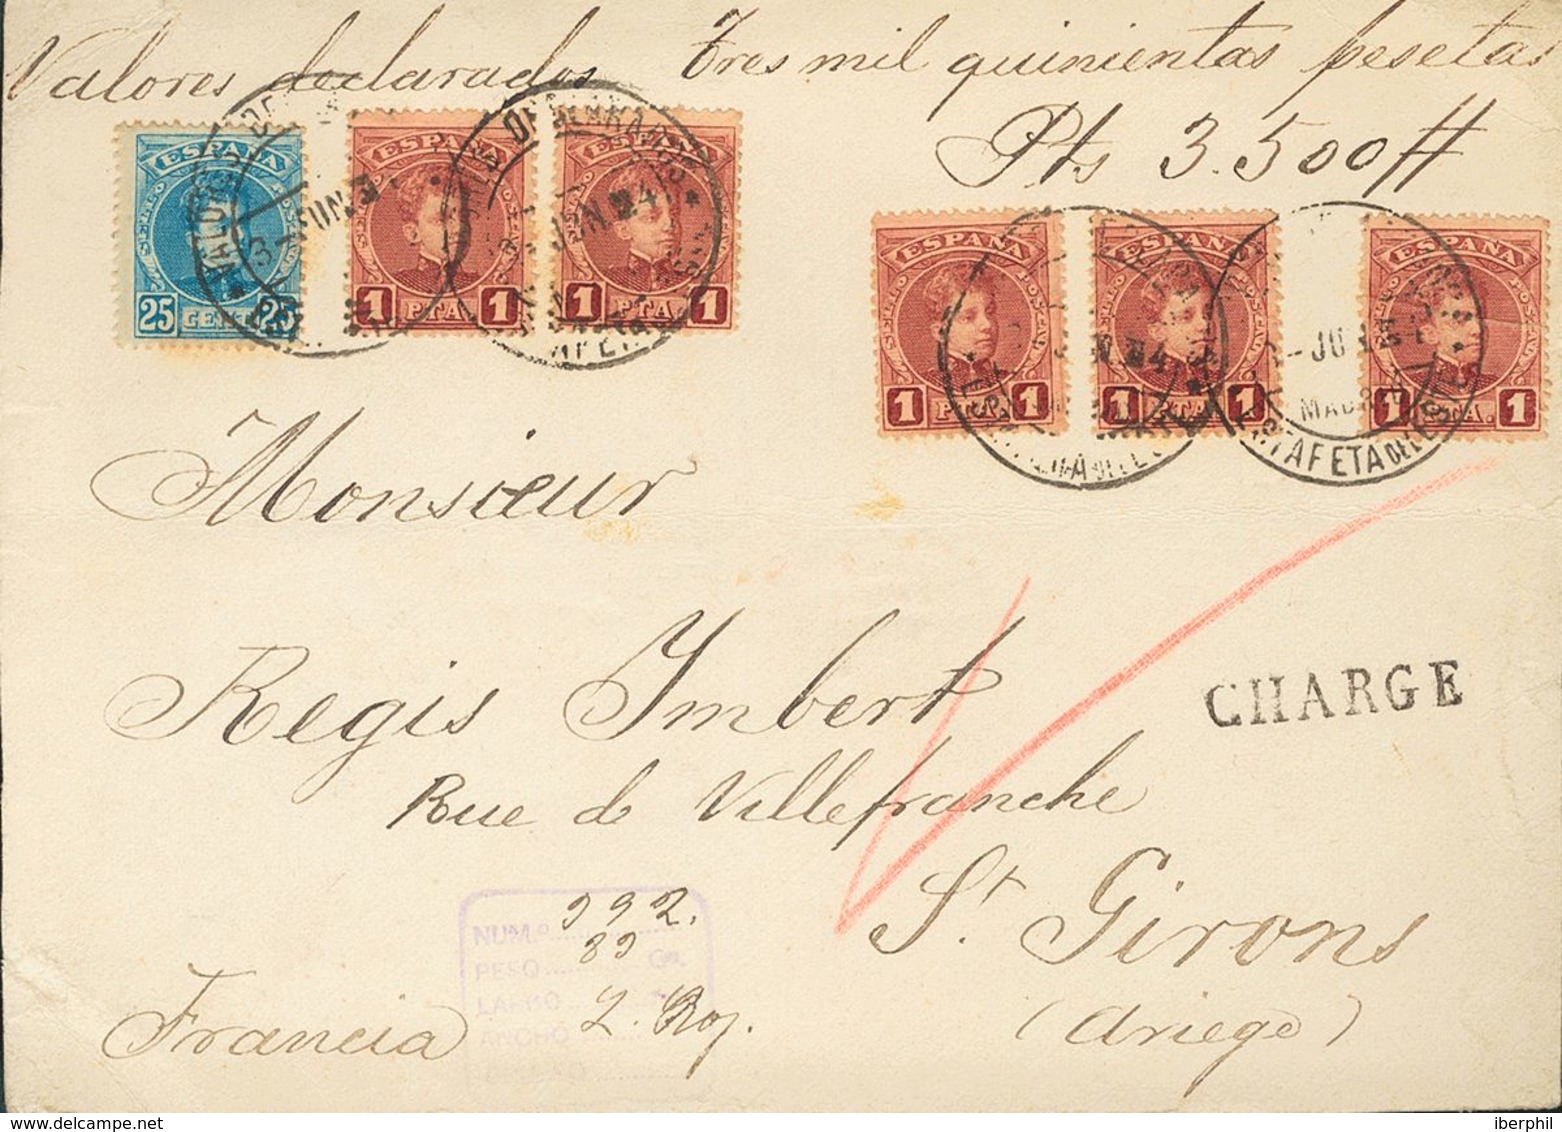 Valores declarados Tres mil quinientas pesetas
Pts 3.500#
ESPAÑA
25 CENT. 25
ESPAÑA
1 PTA. 1
ESPAÑA
1 PTA. 1
ESPAÑA
1 PTA. 1
ESPAÑA
1 PTA. 1
ESPAÑA
1 PTA. 1
VALORES DECLARADOS
JUN
MADRID
ESTAFETA DEL ESTE
Monsieur
Regis Imbert
CHARGE
Rue de Villefranche
St Girons
(Ariege)
Francia
NUM.º 992.
PESO 89 Gs.
LARGO
ANCHO
iberphil